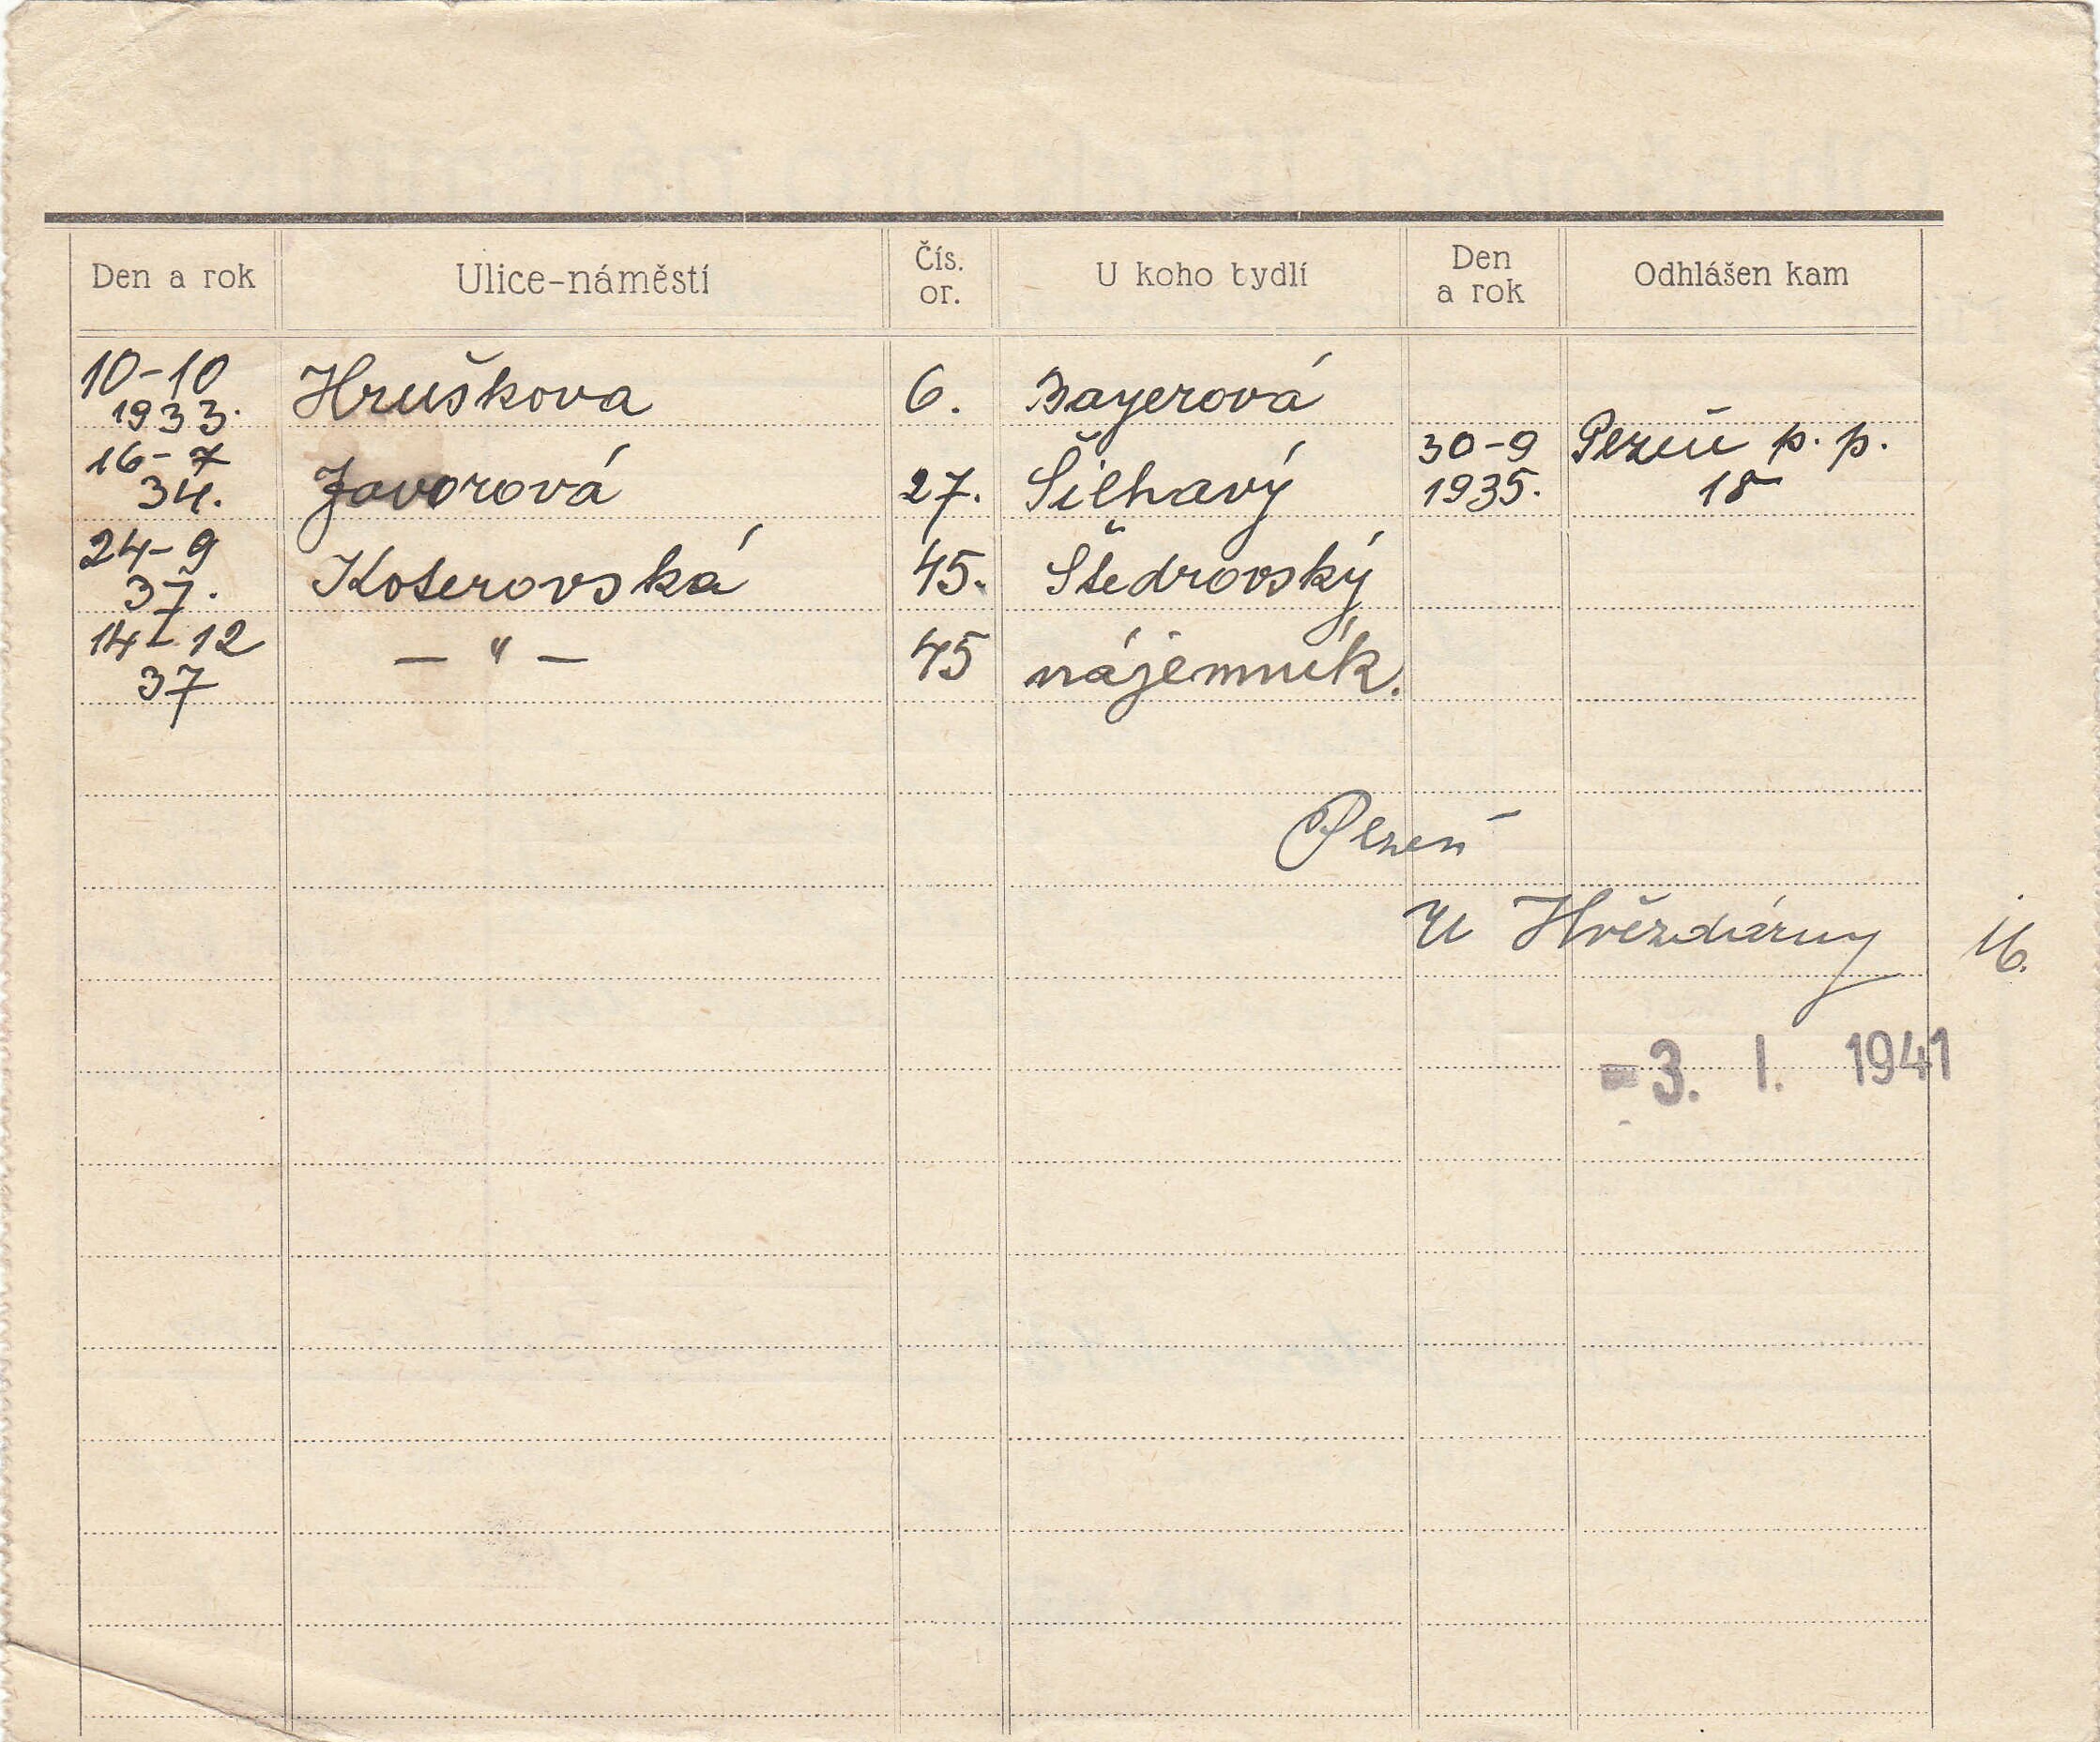 Den a rok Ulice-náměstí Čís. or. U koho bydlí Den a rok Odhlášen kam
10-10 1933. Hruškova 6. Bayerová
16-7 34. Javorová 27. Šilhavý 30-9 1935. Plzeň p. p. 18
24-9 37. Koterovská 45. Štědrovský
14-12 37 — " — 45 nájemník.
Plzeň
U Hvězdárny 16.
-3. I. 1941